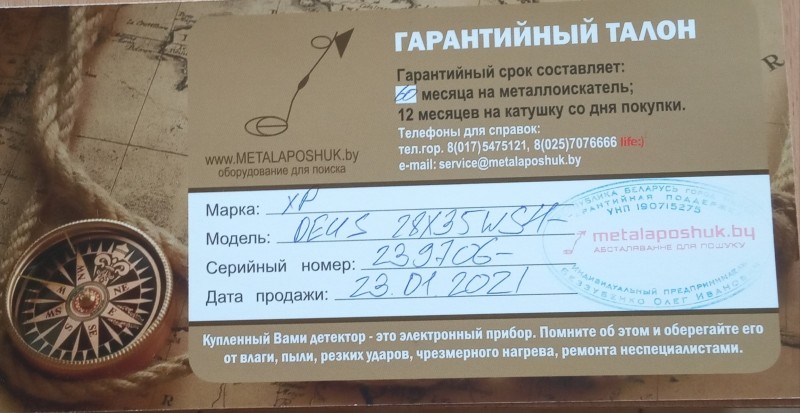 ГАРАНТИЙНЫЙ ТАЛОН
Гарантийный срок составляет:
60 месяца на металлоискатель;
12 месяцев на катушку со дня покупки.
Телефоны для справок:
тел.гор. 8(017)5475121, 8(025)7076666 life:)
e-mail: service@metalaposhuk.by
www.METALAPOSHUK.by
оборудование для поиска
Марка: XP
Модель: DEUS 28X35WSH-
Серийный номер: 239706-
Дата продажи: 23.01.2021
УНП 190715275
metalaposhuk.by
АБСТАЛЯВАННЕ ДЛЯ ПОШУКУ
ИНДИВИДУАЛЬНЫЙ ПРЕДПРИНИМАТЕЛЬ
Купленный Вами детектор - это электронный прибор. Помните об этом и оберегайте его
от влаги, пыли, резких ударов, чрезмерного нагрева, ремонта неспециалистами.
NE
E
SE
SW
R